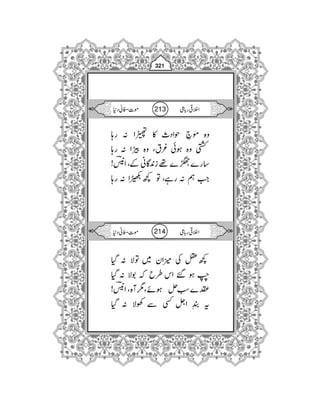 321
اخلاقی رباعی 213 موت-فانی دنیا
وہ موجِ حوادث کا تھپیڑا نہ رہا
کشتی وہ ہوئی غرق، وہ بیڑا نہ رہا
سارے جھگڑے تھے زندگانی کے، انیسؔ!
جب ہم نہ رہے، تو کچھ بکھیڑا نہ رہا
اخلاقی رباعی 214 موت-فانی دنیا
کچھ عقل کی میزان میں تولا نہ گیا
چپ ہو گئے اس طرح کہ بولا نہ گیا
عقدے سب حل ہوئے، مگر آہ، انیسؔ!
یہ بندِ اجل کسی سے کھولا نہ گیا